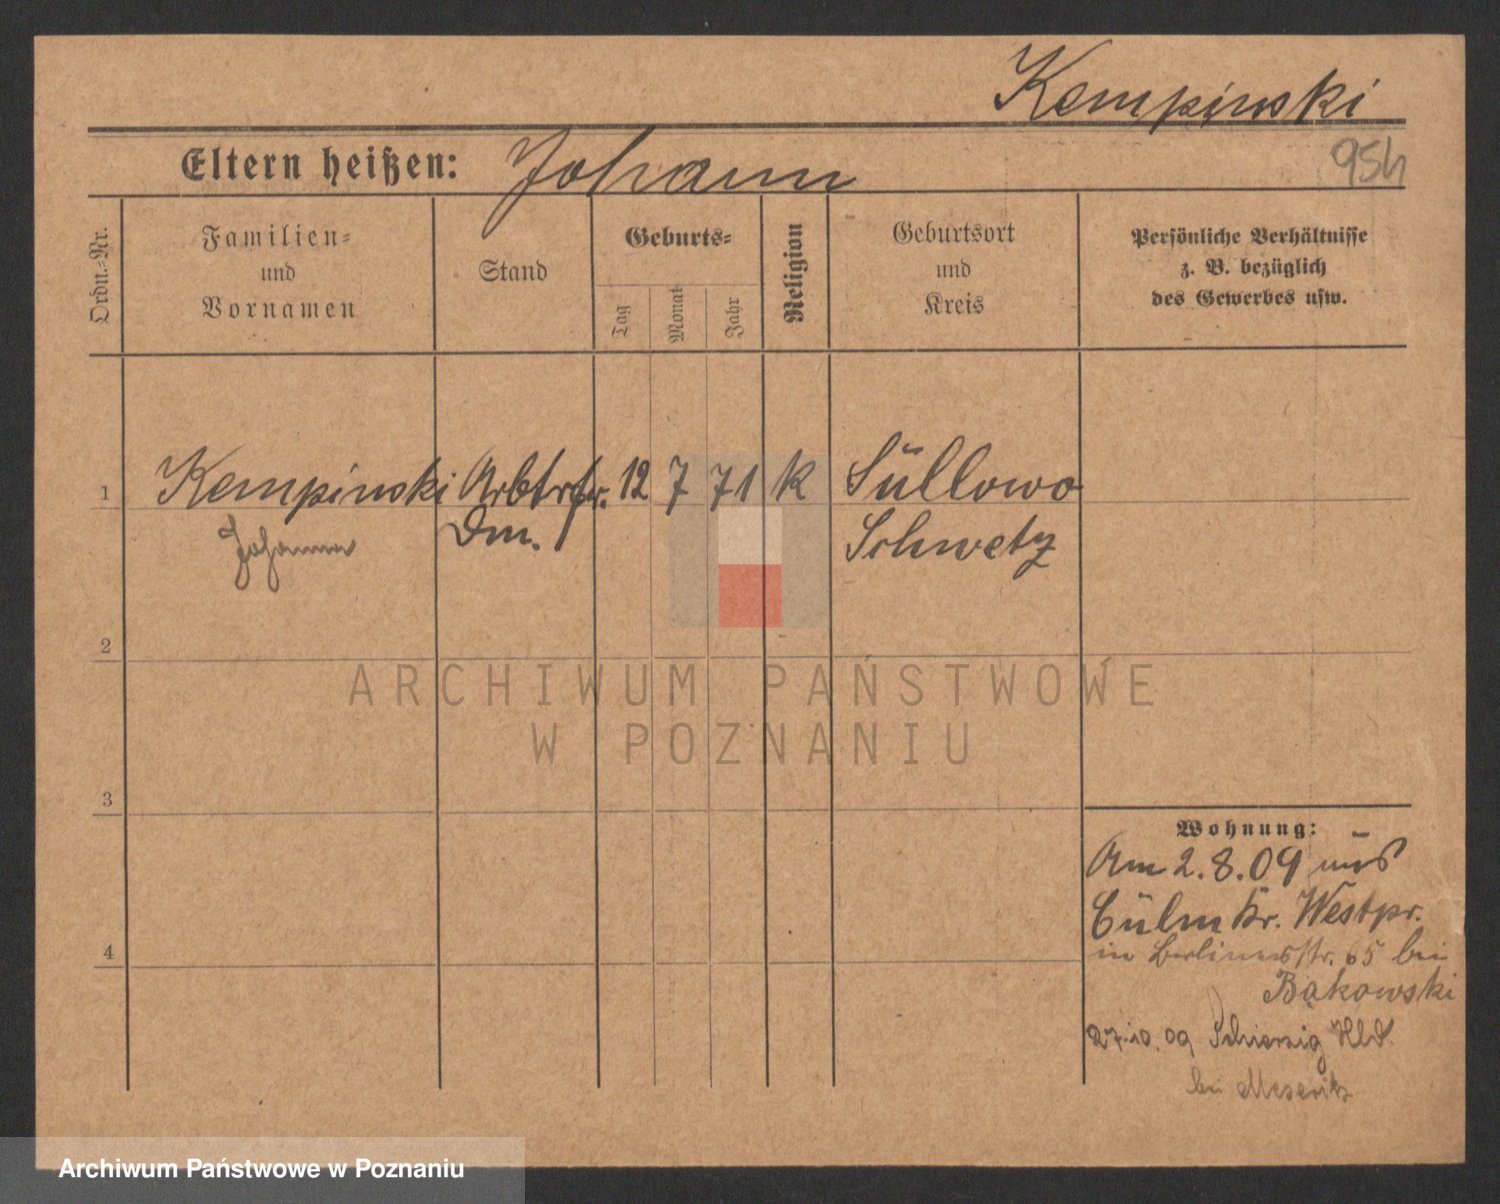 Kempinski
Eltern heißen: Johann
954
Ordn.-Nr.
Familien-
und
Vornamen
Stand
Geburts-
Tag
Monat
Jahr
Religion
Geburtsort
und
Kreis
Persönliche Verhältnisse
z. B. bezüglich
des Gewerbes usw.
1
Kempinski Arbtrfr. 12 7 71 K Süllowo
Johanna Dm. Schwetz
2
ARCHIWUM PAŃSTWOWE
W POZNANIU
3
Wohnung:
Am 2.8.09 aus
Cülm Kr. Westpr.
4
in Berlinerstr. 65 bei
Bąkowski
27.10.09 Schierzig Hld.
bei Meseritz
Archiwum Państwowe w Poznaniu